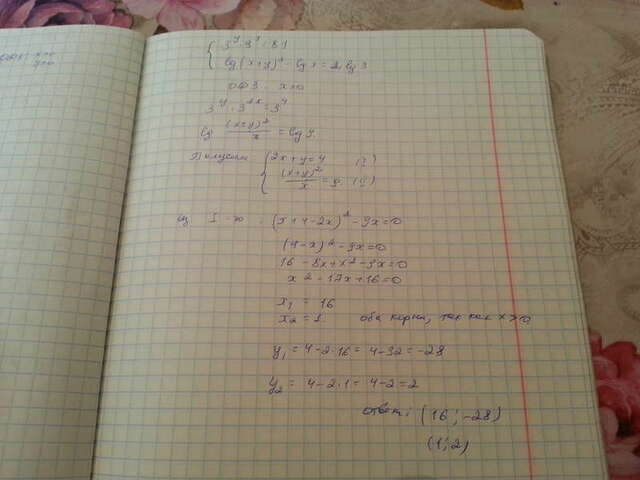 { 3^y · 9^x = 81
lg(x+y)² - lg x = 2 lg 3
ОДЗ: x>0
3^y · 3^2x = 3^4
lg (x+y)²/x = lg 9
Получаем { 2x + y = 4 (I)
(x+y)²/x = 9 (II)
из I-го: (x+4-2x)² - 9x = 0
(4-x)² - 9x = 0
16 - 8x + x² - 9x = 0
x² - 17x + 16 = 0
x₁ = 16
x₂ = 1. оба корни, так как x>0
y₁ = 4-2·16 = 4-32 = -28
y₂ = 4-2·1 = 4-2 = 2
ответ: (16; -28)
(1; 2)